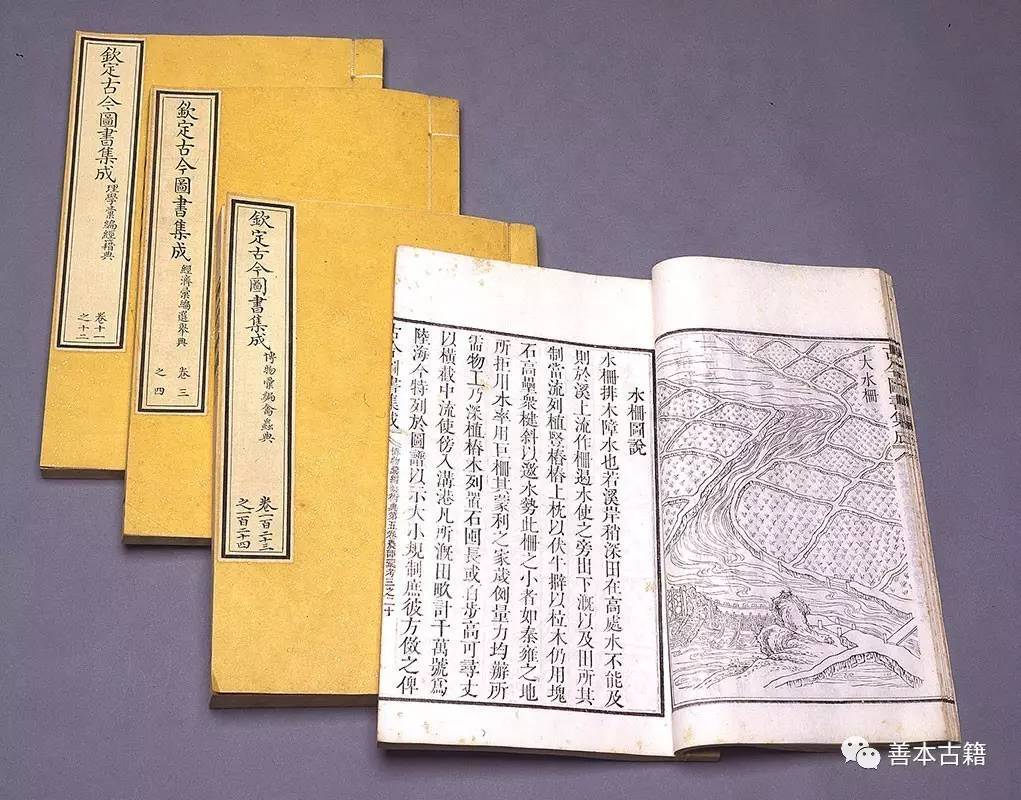 欽定古今圖書集成
理學彙編經籍典
卷十一
之十二
欽定古今圖書集成
經濟彙編選舉典
卷三
之四
欽定古今圖書集成
博物彙編禽蟲典
卷一百二十三
之一百二十四
大水柵
水柵圖說
水柵排木障水也若溪岸稍深田在高處水不能及
則於溪上流作柵遏水使之旁出下溉以及田所其
制當流列植竪樁樁上枕以伏牛擗以柆木仍用塊
石高壘衆楗斜以邀水勢此柵之小者如秦雍之地
所拒川水率用巨柵其蒙利之家歲例量力均辦所
需物工乃深植樁木列置石囤長或百步高可尋丈
以橫截中流使傍入溝港凡所溉田畝計千萬號爲
陸海今特列於圖譜以示大小規制庶彼方傚之俾
古今圖書集成
善本古籍